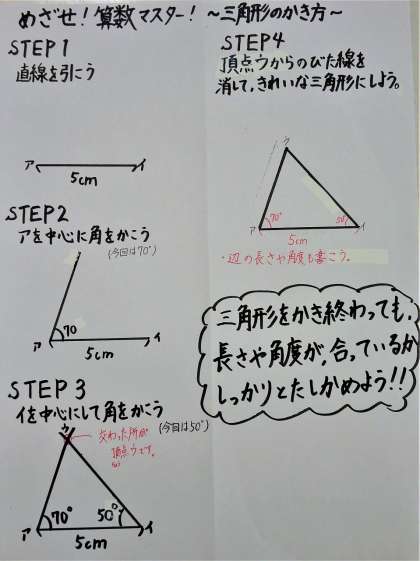 めざせ！算数マスター！ ～三角形のかき方～
STEP1
直線を引こう
ア イ
5cm
STEP2
アを中心に角をかこう
(今回は70°)
70
ア イ
5cm
STEP3
イを中心にして角をかこう
(今回は50°)
ウ
交わった所が
頂点ウです。
70° 50°
ア イ
5cm
STEP4
頂点ウからのびた線を
消して、きれいな三角形にしよう。
ウ
70° 50°
ア イ
5cm
・辺の長さや角度も書こう。
三角形をかき終わっても、
長さや角度が、合っているか
しっかりとたしかめよう！！